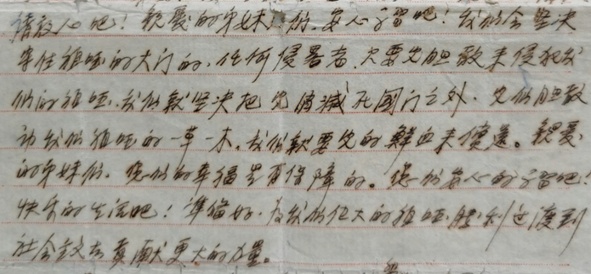 请放心吧！親爱的弟妹们，安心学習吧！我们会坚决
守住祖国的大门的，任何侵略者，只要它胆敢来侵犯我
们的祖国，我们就坚决把它消滅在国门之外，它们胆敢
动我们祖国的一草一木，我们就要它的鲜血来偿还。親爱
的弟妹们，您们的幸福是有保障的。您们安心的学習吧！
快乐的生活吧！準备好，为我们伟大的祖国，勝利过渡到
社会主义去貢献更大的力量。